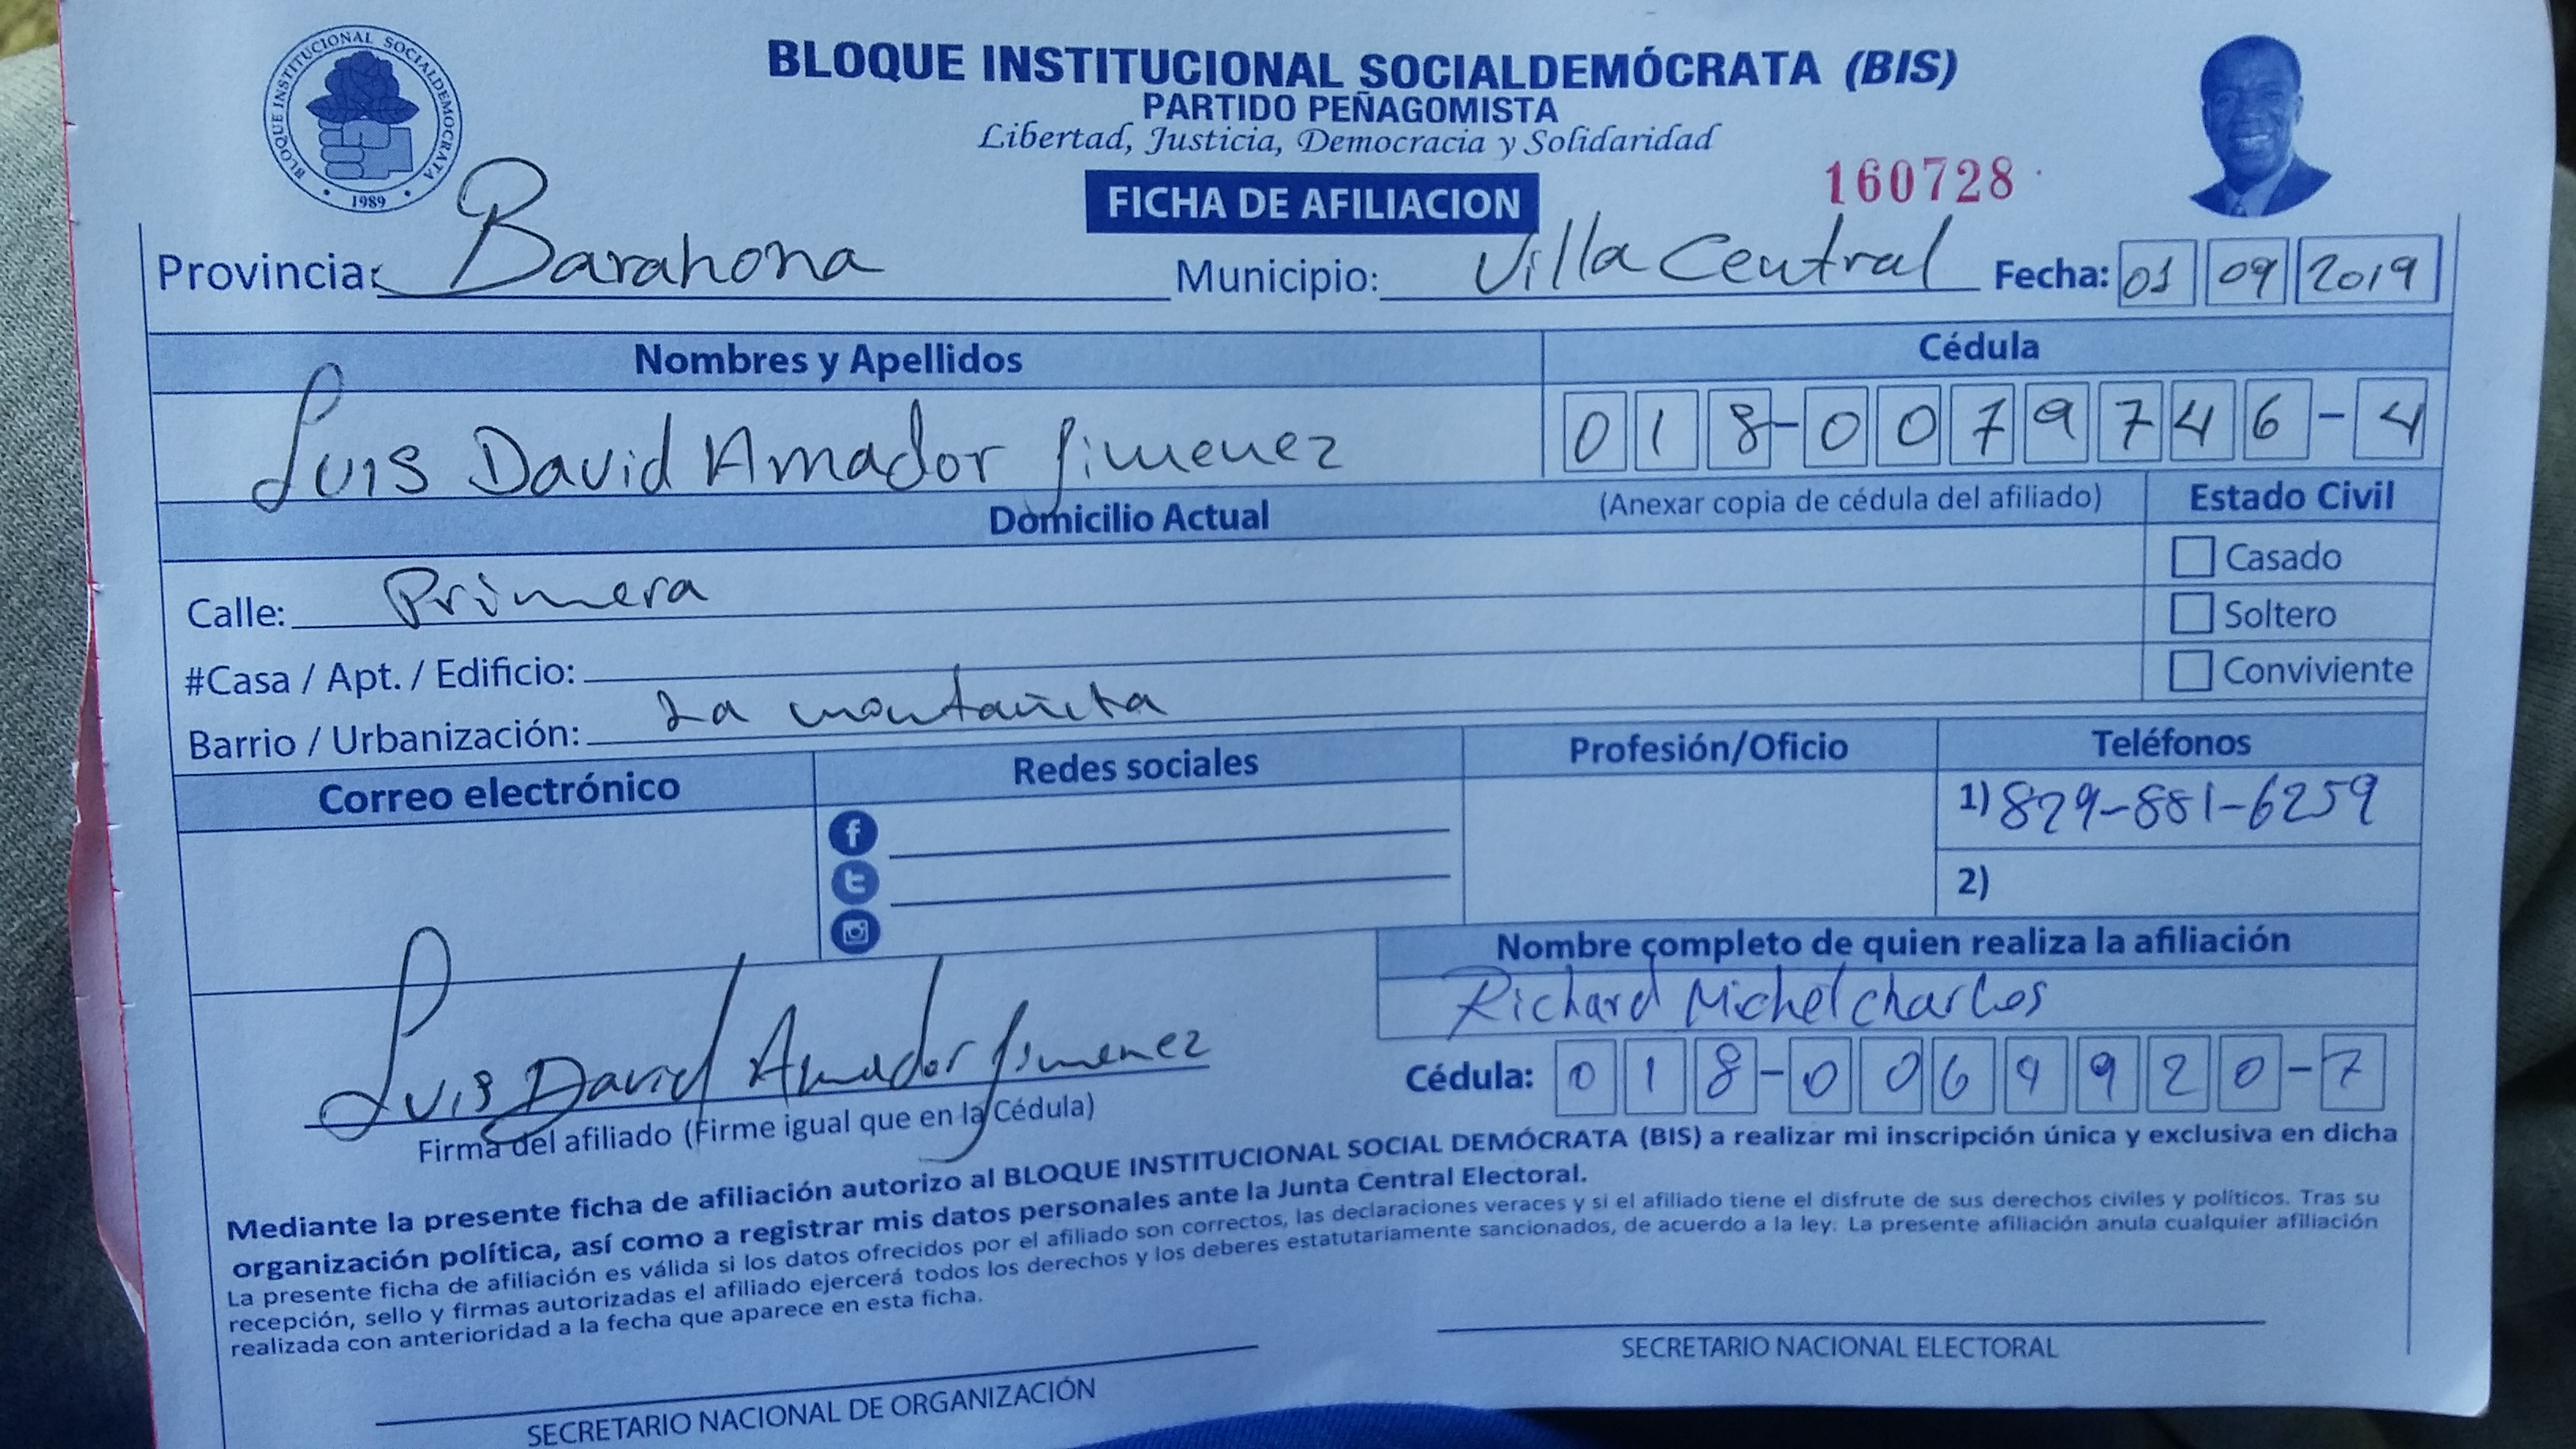 BLOQUE INSTITUCIONAL SOCIALDEMOCRATA
1989
BLOQUE INSTITUCIONAL SOCIALDEMÓCRATA (BIS)
PARTIDO PEÑAGOMISTA
Libertad, Justicia, Democracia y Solidaridad
160728
FICHA DE AFILIACION
Provincia: Barahona Municipio: Villa Central Fecha: 01 09 2019
Nombres y Apellidos Cédula
Luis David Amador Jimenez 018-0079746-4
Domicilio Actual (Anexar copia de cédula del afiliado) Estado Civil
Casado
Calle: Primera Soltero
#Casa / Apt. / Edificio: Conviviente
Barrio / Urbanización: La montañita
Correo electrónico Redes sociales Profesión/Oficio Teléfonos
1) 829-881-6259
2)
Nombre completo de quien realiza la afiliación
Richard Michel Charles
Luis David Amador Jimenez Cédula: 018-0069920-7
Firma del afiliado (Firme igual que en la Cédula)
Mediante la presente ficha de afiliación autorizo al BLOQUE INSTITUCIONAL SOCIAL DEMÓCRATA (BIS) a realizar mi inscripción única y exclusiva en dicha
organización política, así como a registrar mis datos personales ante la Junta Central Electoral.
La presente ficha de afiliación es válida si los datos ofrecidos por el afiliado son correctos, las declaraciones veraces y si el afiliado tiene el disfrute de sus derechos civiles y políticos. Tras su
recepción, sello y firmas autorizadas el afiliado ejercerá todos los derechos y los deberes estatutariamente sancionados, de acuerdo a la ley. La presente afiliación anula cualquier afiliación
realizada con anterioridad a la fecha que aparece en esta ficha.
SECRETARIO NACIONAL DE ORGANIZACIÓN SECRETARIO NACIONAL ELECTORAL